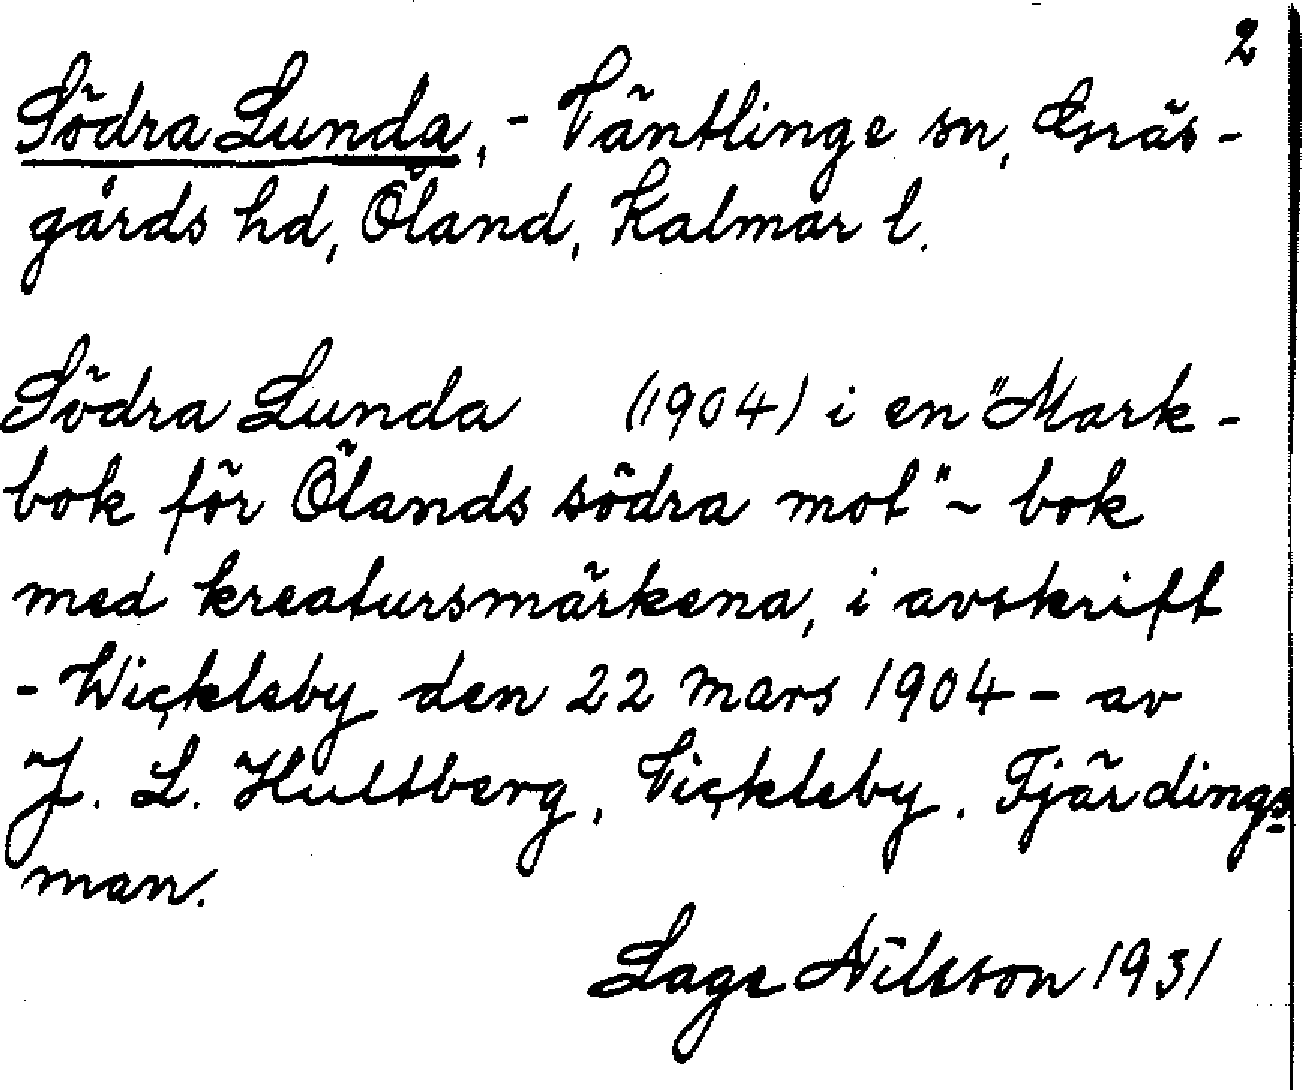 2
Södra Lunda, - Väntlinge sn, Gräs-
gårds hd, Öland, Kalmar l.
Södra Lunda (1904) i en "Mark-
bok för Ölands södra mot" - bok
med kreatursmärkena, i avskrift
- Wickleby den 22 mars 1904 - av
J. L. Hultberg, Vickleby. Fjärdings-
man.
Lage Nilsson 1931